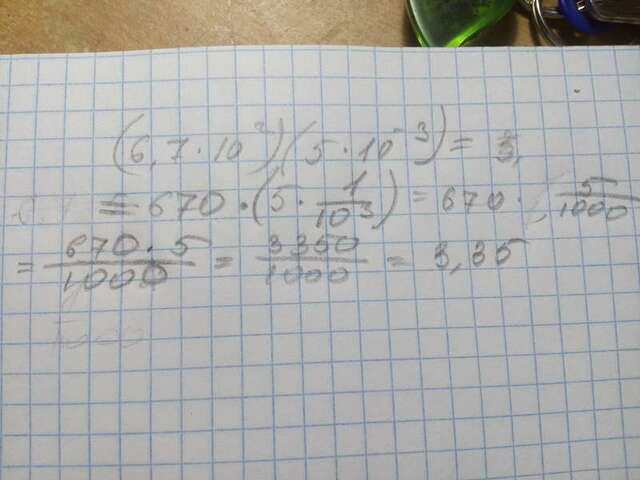 (6,7·10²)(5·10⁻³)= 3,
=670·(5·1/10³)=670·5/1000
=670·5/1000=3350/1000=3,35